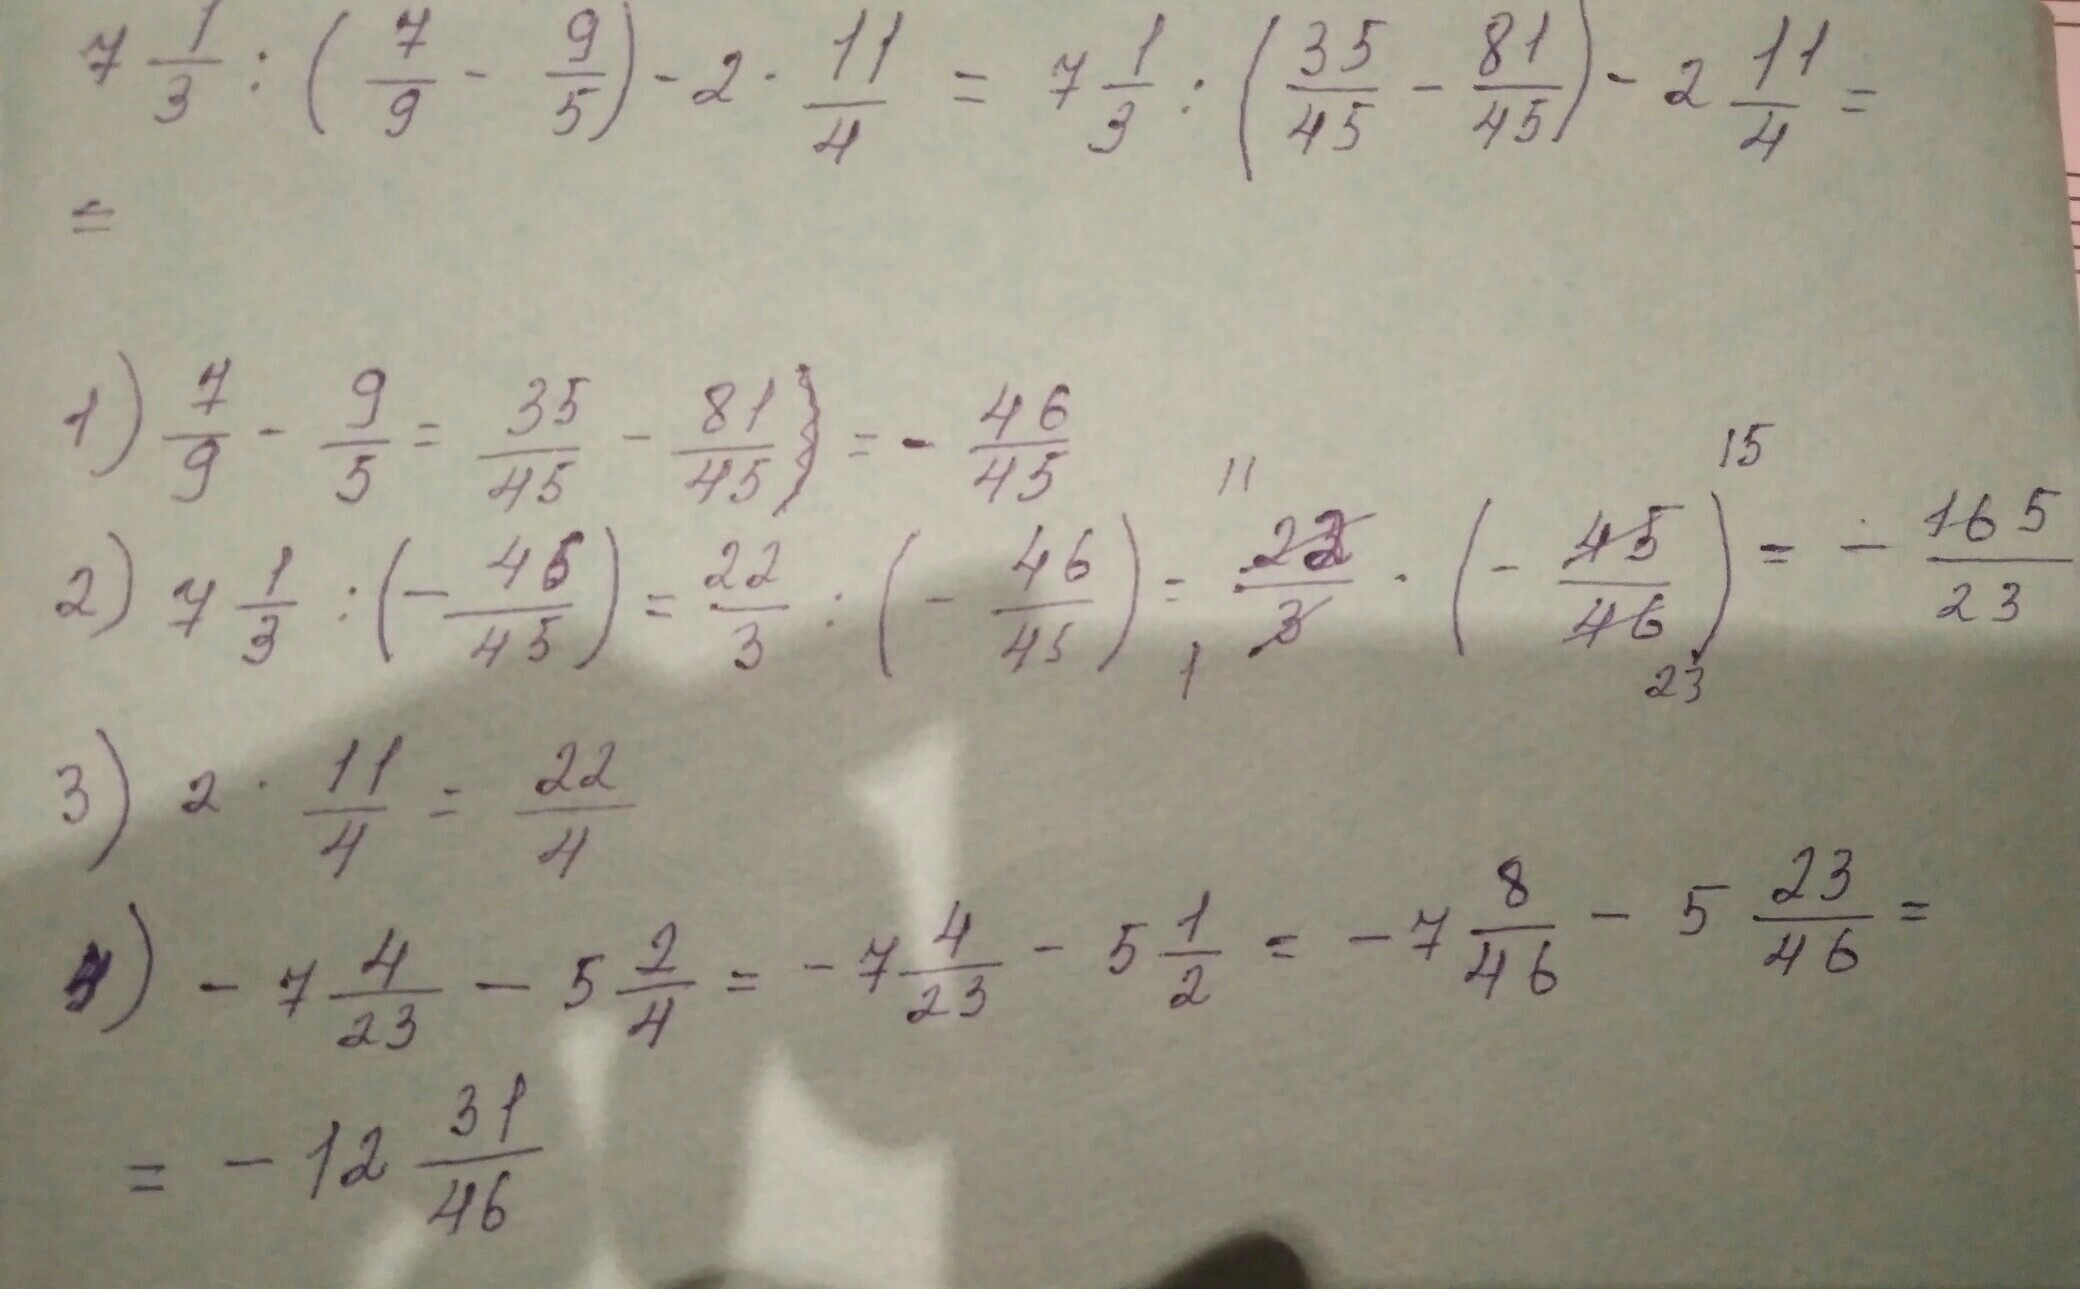 7 1/3 : (7/9 - 9/5) - 2 · 11/4 = 7 1/3 : (35/45 - 81/45) - 2 11/4 =
=
1) 7/9 - 9/5 = 35/45 - 81/45) = - 46/45
2) 7 1/3 : (- 46/45) = 22/3 : (- 46/45) = 22/3 11 1 · (- 45/46) 15 23 = - 165/23
3) 2 · 11/4 = 22/4
4) - 7 4/23 - 5 2/4 = - 7 4/23 - 5 1/2 = - 7 8/46 - 5 23/46 =
= - 12 31/46